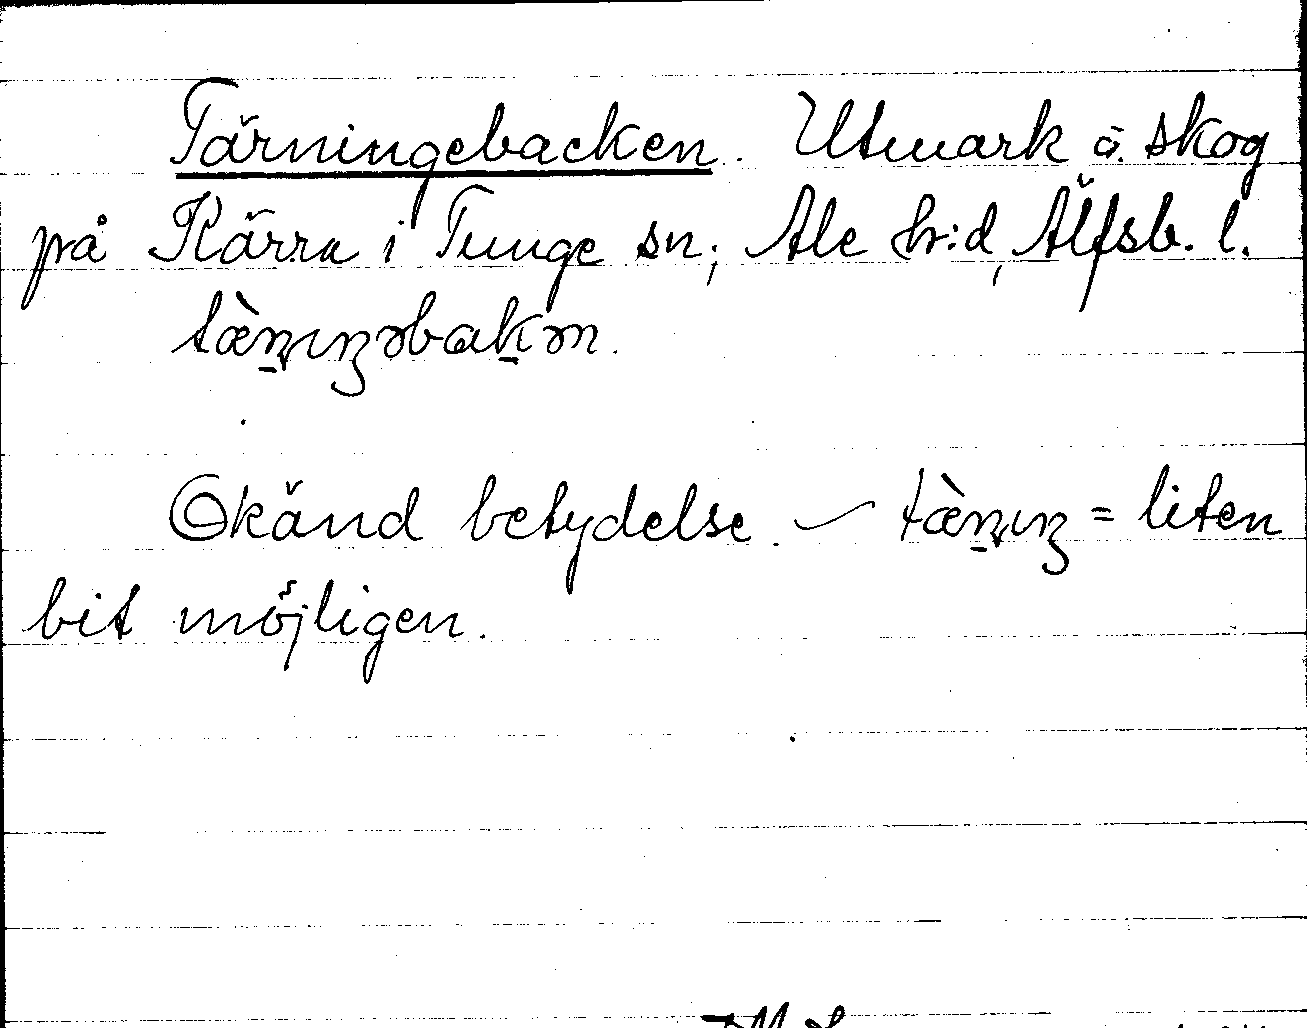 Tärningebacken. Utmark o. skog
på Kärra i Tunge sn; Ale hr:d, Älfsb. l.
tæ̀n̠ɪŋəbak̠ən.
Okänd betydelse. – tæ̀n̠ɪŋ = liten
bit möjligen.